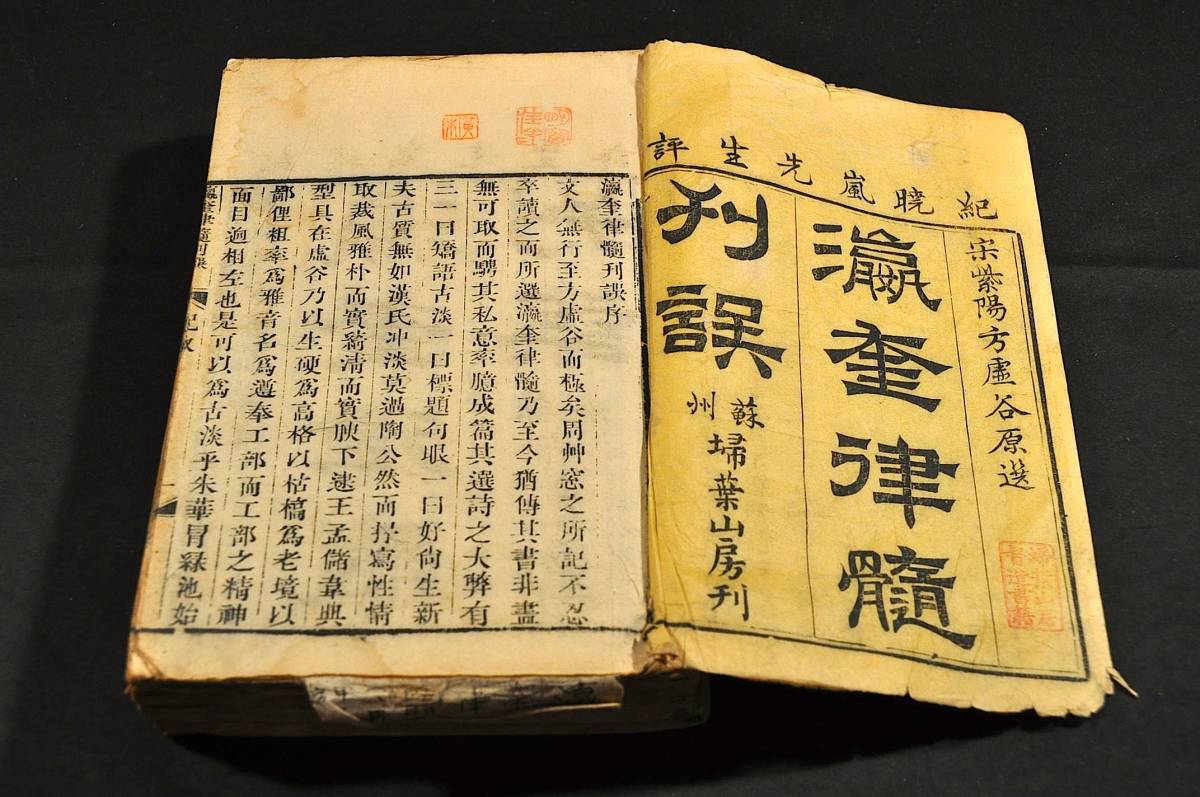 紀曉嵐先生評
宋紫陽方虛谷原選
瀛奎律髓
刊誤
蘇州
埽葉山房刊
瀛奎律髓刊誤序
文人無行至方虛谷而極矣周艸窓之所記不忍
卒讀之而所選瀛奎律髓乃至今猶傳其書非盡
無可取而騁其私意率臆成篇其選詩之大弊有
三一曰矯語古淡一曰標題句眼一曰好尙生新
夫古質無如漢氏冲淡莫過陶公然而抒寫性情
取裁風雅朴而實綺淸而實腴下逮王孟儲韋典
型具在虛谷乃以生硬爲高格以枯槁爲老境以
鄙俚粗率爲雅音名爲遵奉工部而工部之精神
面目逈相左也是可以爲古淡乎朱華冒綠池始
瀛奎律髓刊誤